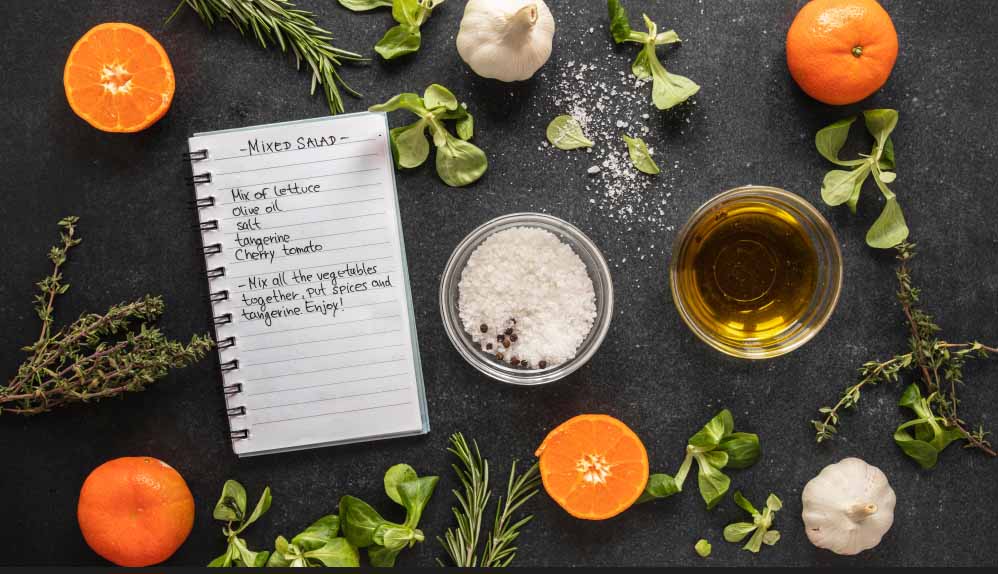 - MIXED SALAD -
Mix of lettuce
Olive oil
salt
tangerine
Cherry tomato
- Mix all the vegetables
together, put spices and
tangerine. Enjoy!